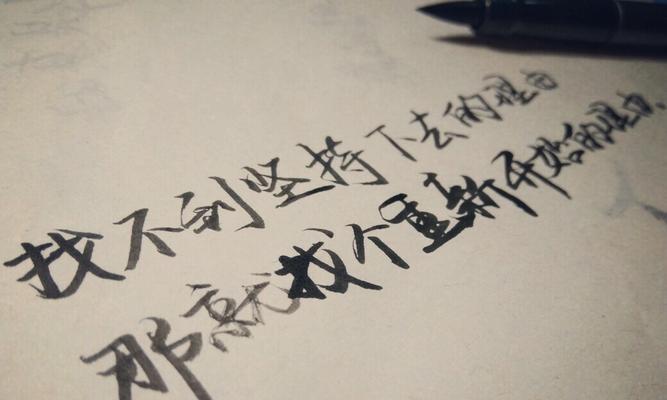 找不到坚持下去的理由
那就找个重新开始的理由.